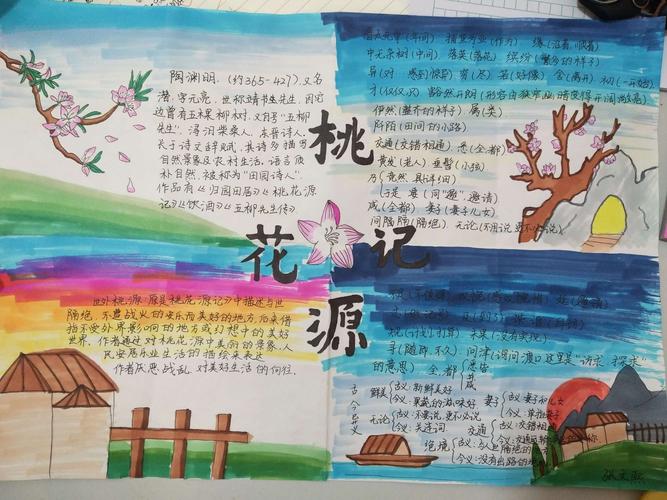 陶渊明,(约365-427),又名
潜,字元亮,世称靖节先生,因宅
边曾有五棵柳树,又自号"五柳
先生",浔阳柴桑人,东晋诗人,
长于诗文辞赋,其诗多描写
自然景象及农村生活,语言质
朴自然,被称为"田园诗人"。
作品有《归园田居》《桃花源
记》《饮酒》《五柳先生传》
太元元中(年间) 捕鱼为业(作为) 缘(沿着,顺着)
中无杂树(中间) 落英(落花) 缤纷(繁多的样子)
异(对 感到惊异) 穷(尽) 若(好像) 舍(离开) 初(一开始)
才(仅仅,只) 豁然开朗(形容由狭窄幽暗变得开阔敞亮)
俨然(整齐的样子) 属(类)
阡陌(田间的小路)
交通(交错相通) 悉(全都)
黄发(老人) 垂髫(小孩)
乃(竟然,
要(同"邀",邀请)
咸(全都) 妻子(妻子儿女)
间隔(隔绝) 无论(不用说,更不必说)
桃
花
源
记
世外桃源:源是桃花源记》中描述与世
隔绝,不遭战火的安乐而美好的地方,后来借
指不受外界影响的地方或幻想中的美好
世界。作者通过对桃花源中美丽的景象、人
民安居乐业生活的描绘来表达
作者厌恶战乱,对美好生活的向往。
规(计划,打算) 未果(没有实现)
寻(随即,不久) 问津(询问渡口,这里是"访求、探求"
的意思) 全都 悉 皆 咸
古今异义
鲜美 古义:新鲜美好
今义:果蔬的滋味好
妻子 古义:妻子和儿女
今义:单指妻子
无论 古义:不要说,更不必说
今义:关连词
交通 古义:交错相通
绝境 古义:与世隔绝的
今义:没有出路的